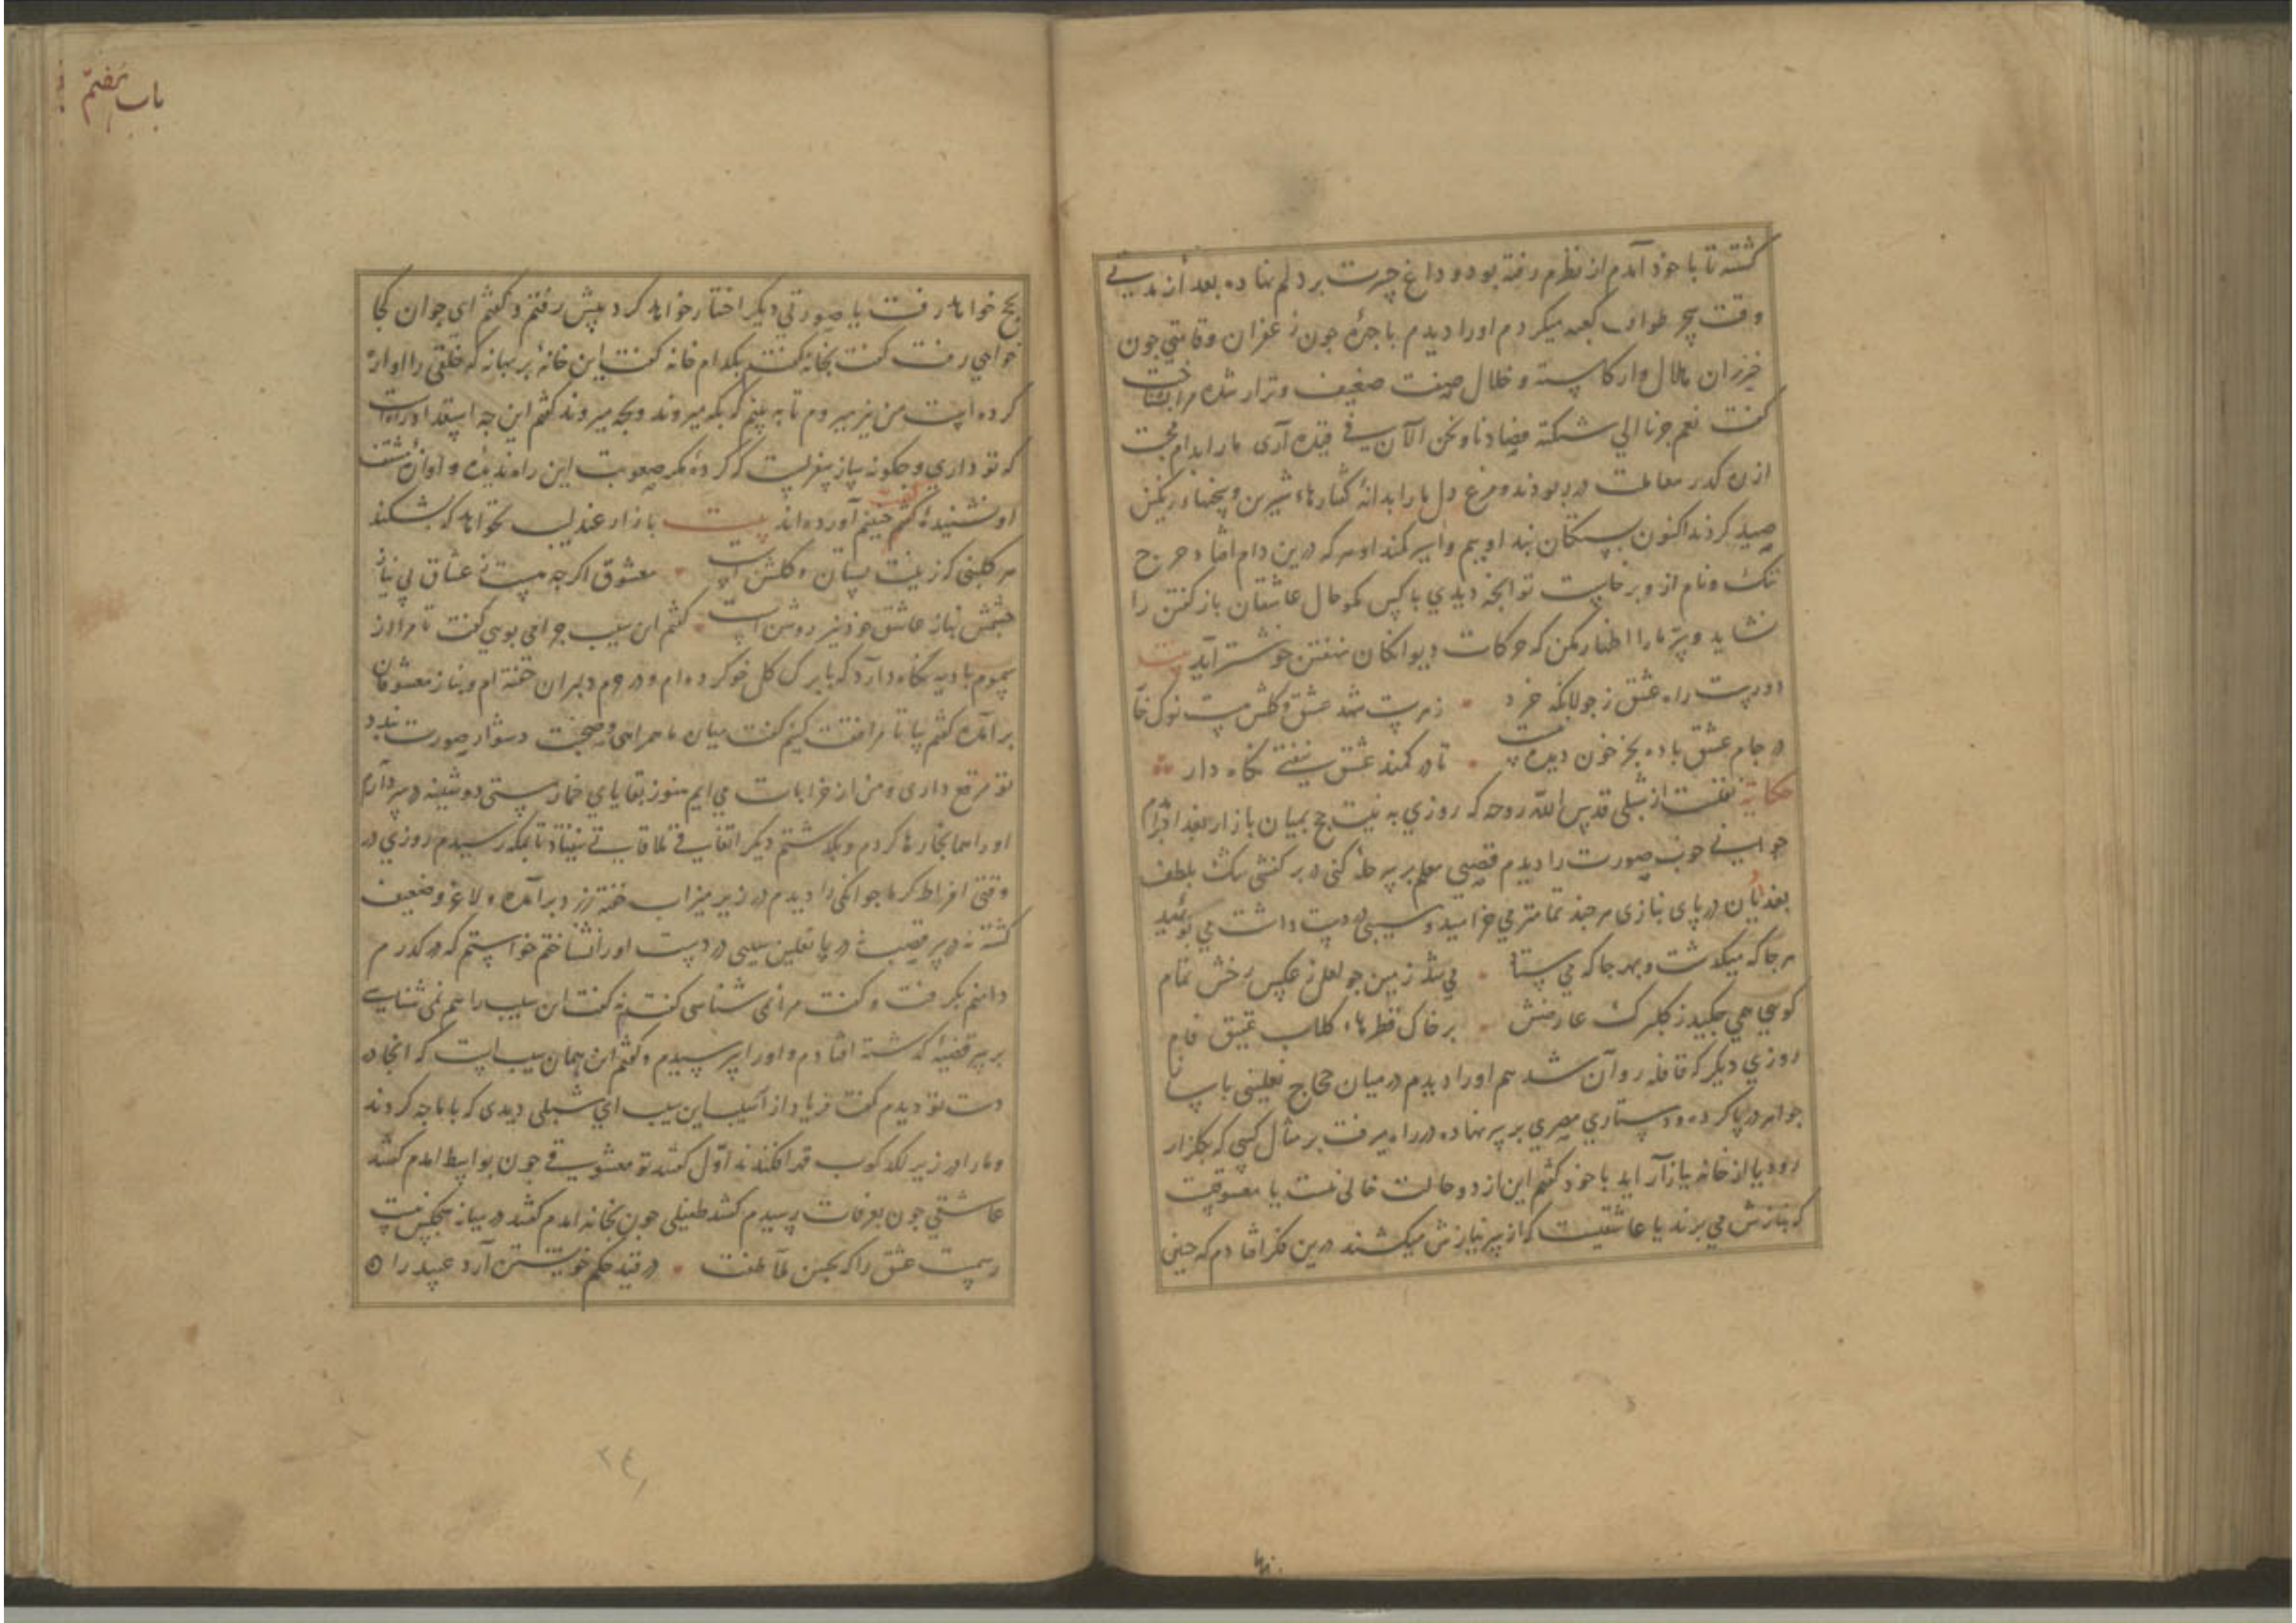 گشته تا با خود آمدم از نظرم رفته بود و داغ حسرت بر دلم نهاده بعد از مدتی
وقت سحر طواف کعبه میکردم اورا دیدم با چهره چون زعفران و قامتی چون
خیزران هلال وار کاسته و خلال صفت ضعیف و نزار شده مرا بشناخت
کفت نعم جزنا الی شبکته فصادنا و نحن الآن فی قیده آری مارا بدام محبت
ازره کذر معاملت در ربودند و مرغ دل مارا بدانهٔ کفتارهاء شیرین و سخنهاء رنکین
صید کردند اکنون بستکان بند اوییم و اسیر کمند او هر که درین دام افتاد حرج
ننک و نام ازو برخاست تو آنچه دیدی با کس مکو حال عاشقان باز کفتن را
نشاید و سرّ مارا اظهار مکن که حرکات دیوانکان نهفتن خوشتر آید بیت
دورست راه عشق ز جولانکه خرد زهرست شهد عشق و کلش هست نوک خار
در جام عشق باده بجز خون دیده نیست تا در کمند عشق نیفتی نکاه دار
حکایت نقلست از شبلی قدس الله روحه که روزی به نیت حج بمیان بازار بغداد
جوانی خوب صورت را دیدم قصبی معلم بر سر حلهٔ کتی در بر کفشی تنک بلطف
بغدادیان در پای بنازی هر چند تمامتر می خرامید و سیبی در دست داشت می بوئید
هر جا که میکذشت و بهر جا که می ستاد می شد زمین چو لعل ز عکس رخش تمام
کویی همی چکید ز کلبرک عارضش بر خاک قطرهاء کلاب عقیق فام
روزی دیکر که قافله روان شد هم اورا دیدم در میان حجاج نعلینی با
جواهر در پا کرده و دستاری مصری بر سر نهاده در راه میرفت بر مثال کسی که بکلزار
رود یا از خانه ببازار آید با خود کفتم این از دو حالت خالی نیست یا معشوقیست
که بنازش می برند یا عاشقیست که از سر نیازش میکشند درین فکر افتادم که چنین
باب هفتم
بحج خواهد رفت یا صورتی دیکر اختیار خواهد کرد پیش رفتم و کفتم ای جوان کجا
خواهی رفت کفت بخانه کفتم بکدام خانه کفت باین خانهٔ پر بهانه که خلقی را آواره
کرده است من نیز میروم تا به بینم که بکه میروند و بچه میروند کفتم این چه استعداد راهست
که تو داری و چکونه ساز سفرست که کردهٔ مکر صعوبت این راه ندیدهٔ و آوازهٔ مشقت
او نشنیدهٔ کفت چنینم آورده اند بیت بازار عندلیب نخواهد که بشکند
هر کلبنی که زینت بستان و کلشن است معشوق اکرچه هست ز عشاق بی نیاز
چشمش بناز عاشق خود نیز روشن است کفتم این سیب چرا می بویی کفت تا مرا از
سموم بادیه نکاه دارد که با برک کل خو کرده ام و در حرم دلبران خفته ام و بناز معشوقان
برآمده کفتم بیا تا مرافقت کنیم کفت میان ما همراهی و صحبت دشوار صورت بندد
تو مرقع داری و من از خرابات می آیم هنوز بقایای خمار مستی دوشینه در سر دارم
اورا همانجا رها کردم و بکذشتم دیکر اتفاق ملاقات نیفتاد تا بمکه رسیدم روزی در
وقتی افراط کرما جوانکی را دیدم در زیر میزاب خفته زرد برآمده و لاغر و ضعیف
کشته نه در سر قصب نه در پا نعلین سیبی در دست اورا نشناختم خواستم که در کذرم
دامنم بکرفت و کفت مرا نمی شناسی کفتم نه کفت این سیب را هم نمی شناسی
بر سر قضیهٔ کذشته افتادم و اورا پرسیدم و کفتم این همان سیب است که آنجا در
دست تو دیدم کفت فریاد از آسیب این سیب ای شبلی دیدی که با ما چه کردند
و مارا در زیر لکدکوب قدم افکندند اول کفتند تو معشوقی چون بواسط آمدم کفتند
عاشقی چون بعرفات رسیدم کفتند طفیلی چون بخانه آمدم کفتند درین خانه هیچکس نیست
رسمیست عشق را که بحسن ملاطفت در قید حکم خویشتن آرد عبید را
۲۴